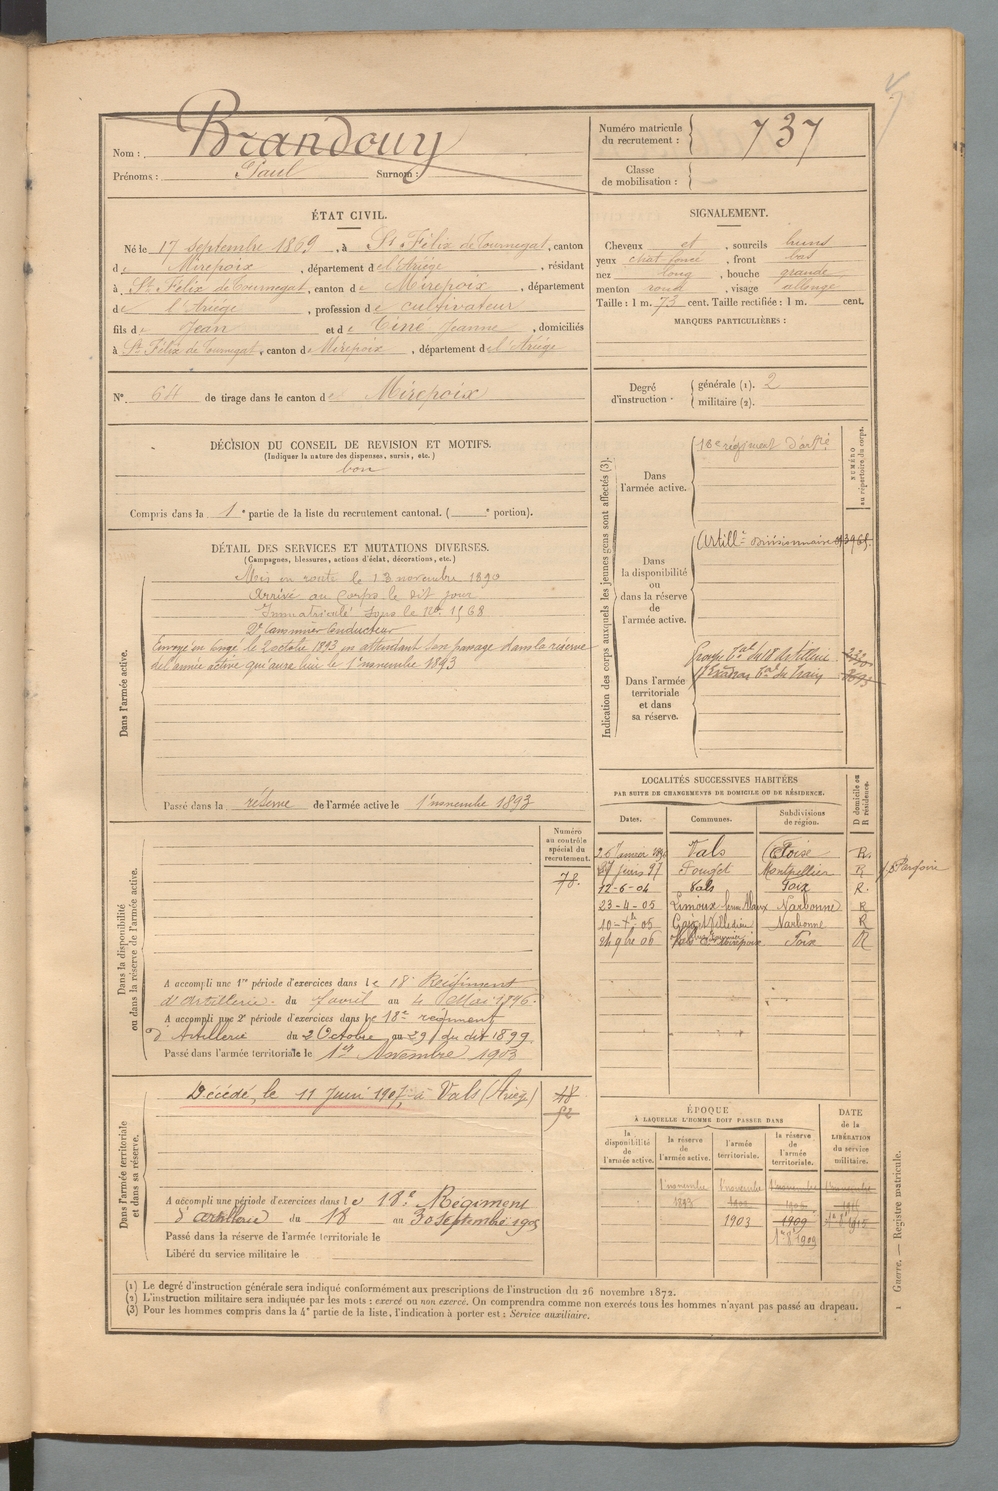 Nom : Brandouy
Prénoms : Paul Surnom :
Numéro matricule du recrutement : 737
Classe de mobilisation :
ÉTAT CIVIL.
Né le 17 septembre 1869, à St Félix de Tournegat, canton
de Mirepoix, département de l'Ariège, résidant
à St Félix de Tournegat, canton de Mirepoix, département
de l'Ariège, profession de cultivateur
fils de Jean et de Ciné Jeanne, domiciliés
à St Félix de Tournegat, canton de Mirepoix, département de l'Ariège
N° 64 de tirage dans le canton de Mirepoix
SIGNALEMENT.
Cheveux et, sourcils bruns
yeux chat foncé, front bas
nez long, bouche grande
menton rond, visage allongé
Taille : 1 m. 73 cent. Taille rectifiée : 1 m. cent.
MARQUES PARTICULIÈRES :
Degré d'instruction. générale (1). 2
militaire (2).
DÉCISION DU CONSEIL DE REVISION ET MOTIFS.
(Indiquer la nature des dispenses, sursis, etc.)
bon
Compris dans la 1e partie de la liste du recrutement cantonal. ( e portion).
DÉTAIL DES SERVICES ET MUTATIONS DIVERSES.
(Campagnes, blessures, actions d'éclat, décorations, etc.)
Dans l'armée active.
Mis en route le 13 novembre 1890
Arrivé au corps le dit jour
Immatriculé sous le N° 1568
2e Canonnier Conducteur
Envoyé en congé le 2 octobre 1893 en attendant son passage dans la réserve
de l'armée active qui aura lieu le 1er novembre 1893
Passé dans la réserve de l'armée active le 1er novembre 1893
Indication des corps auxquels les jeunes gens sont affectés (3).
NUMÉRO au répertoire du corps.
Dans l'armée active.
18e régiment d'artie
Dans la disponibilité ou dans la réserve de l'armée active.
Artillie divisionnaire
Dans l'armée territoriale et dans sa réserve.
Groupe tal du 18 d'artillerie
Escadron tal du train
LOCALITÉS SUCCESSIVES HABITÉES
PAR SUITE DE CHANGEMENTS DE DOMICILE OU DE RÉSIDENCE.
Dates. Communes. Subdivisions de région. D domicile ou R résidence.
Vals R.
27 Juin 97 Montpellier R
12-6-04 Vals Foix R.
23-4-05 Limoux Narbonne R
05 Narbonne R
24 9bre 06 Foix R
Dans la disponibilité ou dans la réserve de l'armée active.
Numéro au contrôle spécial du recrutement.
78.
A accompli une 1re période d'exercices dans le 18e Régiment
d'Artillerie du 7 avril au 4 Mai 1896.
A accompli une 2e période d'exercices dans le 18e régiment
d'Artillerie du 2 Octobre au 29 du dit 1899.
Passé dans l'armée territoriale le 1er Novembre 1903
Dans l'armée territoriale et dans sa réserve.
Décédé, le 11 Juin 1907 à Vals (Ariège)
A accompli une période d'exercices dans le 18e Régiment
d'artillerie du 18 au 30 septembre 1905
Passé dans la réserve de l'armée territoriale le
Libéré du service militaire le
ÉPOQUE
À LAQUELLE L'HOMME DOIT PASSER DANS
la disponibilité de l'armée active. la réserve de l'armée active. l'armée territoriale. la réserve de l'armée territoriale. DATE de la LIBÉRATION du service militaire.
1er novembre 1er novembre 1er novembre 1er novembre
1893
1903 1909
(1) Le degré d'instruction générale sera indiqué conformément aux prescriptions de l'instruction du 26 novembre 1872.
(2) L'instruction militaire sera indiquée par les mots : exercé ou non exercé. On comprendra comme non exercés tous les hommes n'ayant pas passé au drapeau.
(3) Pour les hommes compris dans la 4e partie de la liste, l'indication à porter est : Service auxiliaire.
1 Guerre. — Registre matricule.